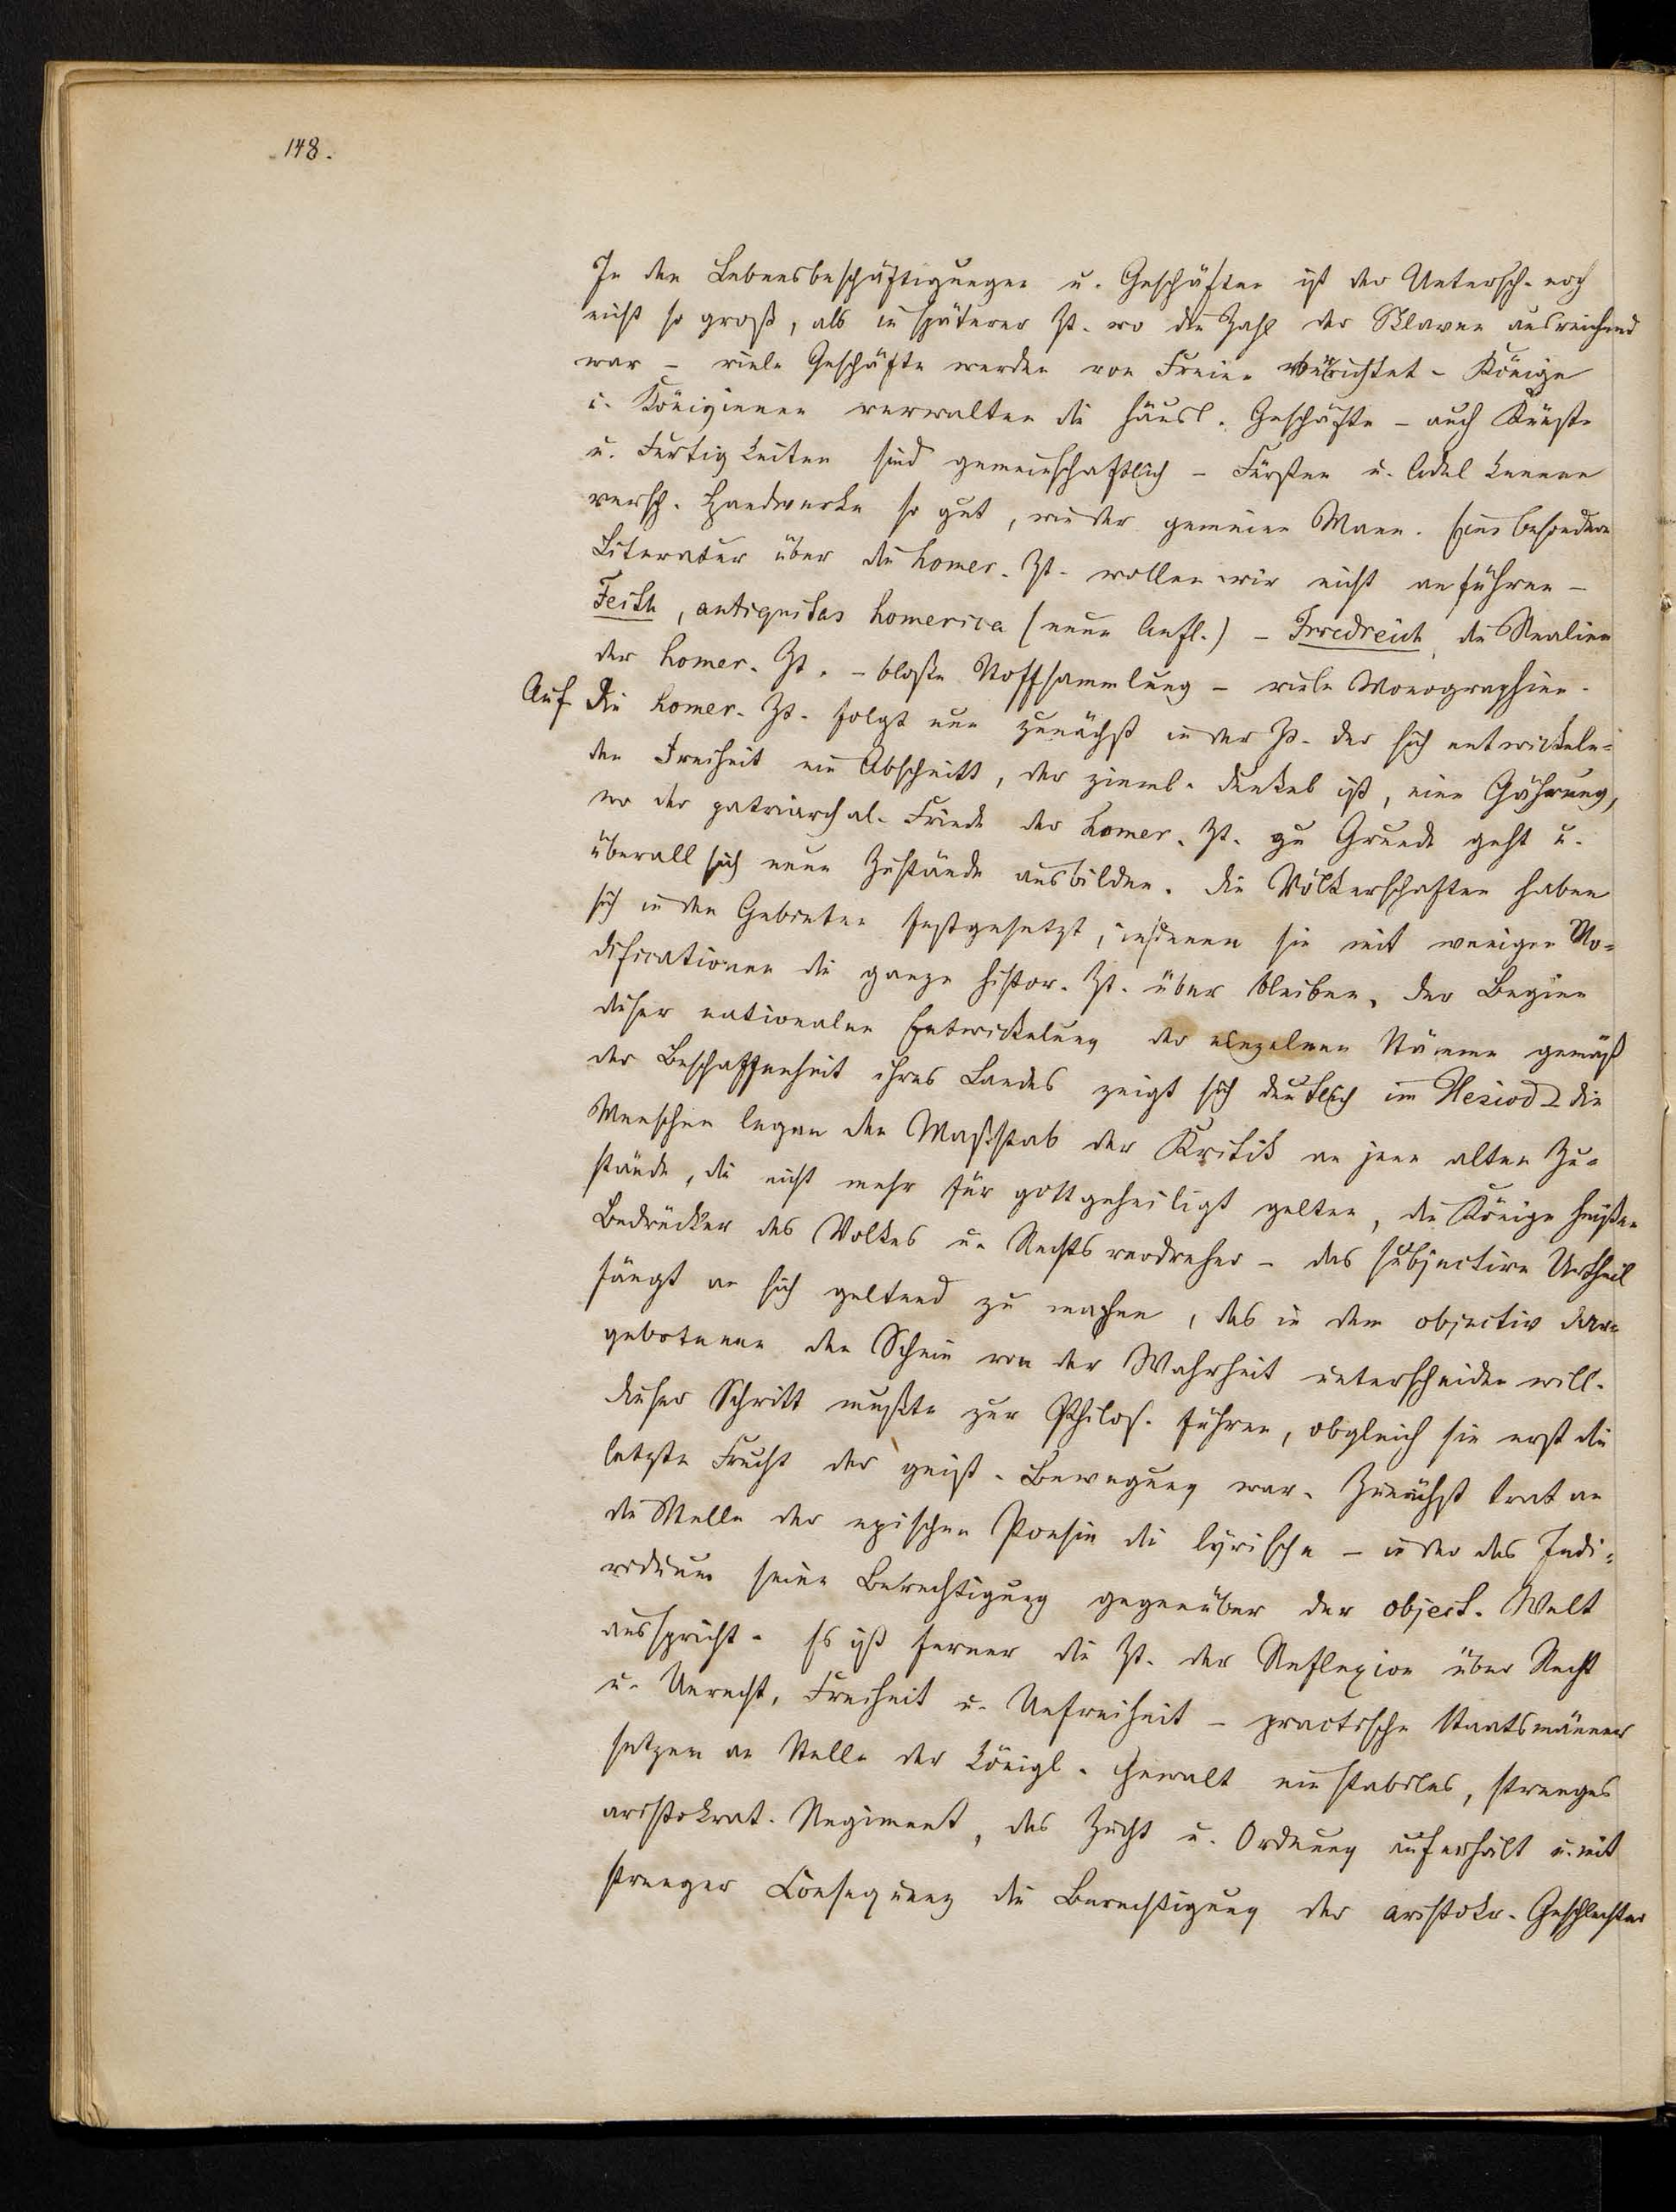 148.
In den Lebensbeschäftigungen u. Geschäften ist der Untersch. noch
nicht so groß, als in späterer Zt. wo die Zahl der Sklaven ausreichend
war – viele Geschäfte werden von Freien verrichtet – Könige
u. Königinnen verwalten die häusl. Geschäfte – auch Künste
u. Fertigkeiten sind gemeinschaftlich – Fürsten u. Adel kennen
versch. Handwerke so gut, wie der gemeine Mann. Eine besondere
Literatur über die homer. Zt. wollen wir nicht anführen –
Feith, antiquitas homerica (neue Aufl.) – Friedreich, die Realien
der homer. Zt. – bloße Stoffsammlung – viele Monographien.
Auf die homer. Zt. folgt nun zunächst in der Zt. der sich entwickeln=
den Freiheit ein Abschnitt, der zieml. dunkel ist, eine Gährung,
wo der patriarchal. Friede der homer. Zt. zu Grunde geht u.
überall sich neue Zustände ausbilden. Die Völkerschaften haben
sich in den Gebieten festgesetzt, in denen sie mit wenigen Mo=
dificationen die ganze histor. Zt. über bleiben. Der Beginn
dieser nationalen Entwickelung der einzelnen Stämme gemäß
der Beschaffenheit ihres Landes zeigt sich deutlich im Hesiod die
Menschen legen den Maßstab der Kritik an jene alten Zu=
stände, die nicht mehr für gottgeheiligt gelten, die Könige heißen
Bedrücker des Volkes u. Rechtsverdreher – das subjective Urtheil
fängt an sich geltend zu machen, das in dem objectiv dar=
gebotenen den Schein von der Wahrheit unterscheiden will.
Dieser Schritt mußte zur Philos. führen, obgleich sie erst die
letzte Frucht der geist. Bewegung war. Zunächst trat an
die Stelle der epischen Poesie die lyrische – in der das Indi=
viduum seine Berechtigung gegenüber der object. Welt
ausspricht. Es ist ferner die Zt. der Reflexion über Recht
u. Unrecht, Freiheit u. Unfreiheit – practische Staatsmänner
setzen an Stelle der königl. Gewalt ein stabiles, strenges
aristokrat. Regiment, das Zucht u. Ordnung auferhält u. mit
strenger Consequenz die Berechtigung der aristokr. Geschlechter